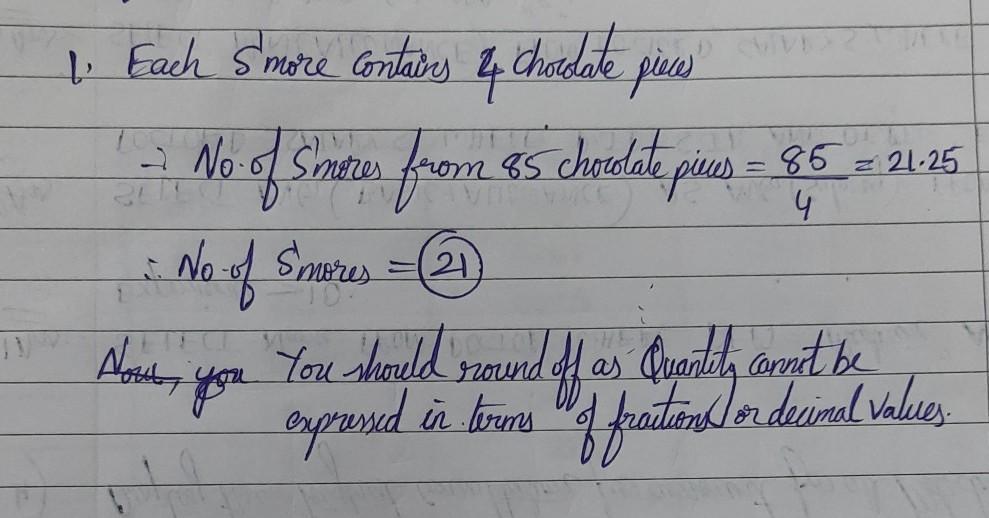 1. Each S'more contains 4 chocolate pieces
→ No. of S'mores from 85 chocolate pieces = 85/4 = 21.25
∴ No. of S'mores = 21
Now, you You should round off as Quantity cannot be
expressed in terms of fractions/or decimal values.